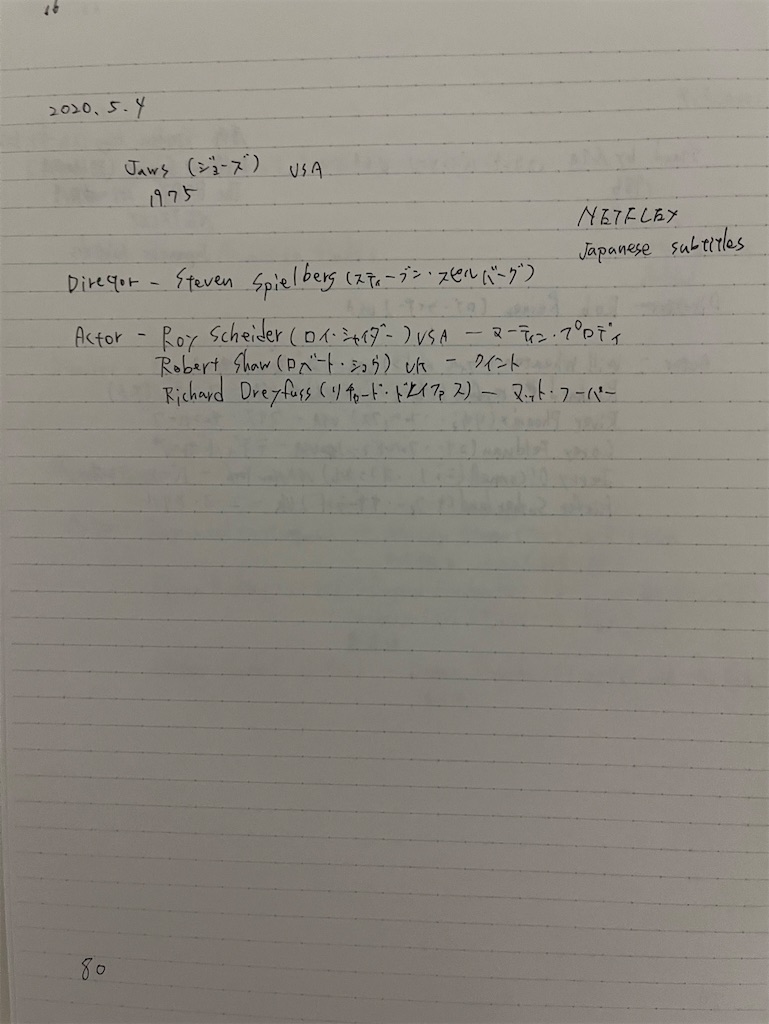 16
2020.5.4
Jaws (ジョーズ) USA
1975
NETFLEX
Japanese subtitles
Director - Steven Spielberg (スティーブン・スピルバーグ)
Actor - Roy Scheider (ロイ・シャイダー) USA - マーティン・プロディ
Robert Shaw (ロバート・ショウ) UK - クイント
Richard Dreyfuss (リチャード・ドレイファス) - マット・フーパー
80